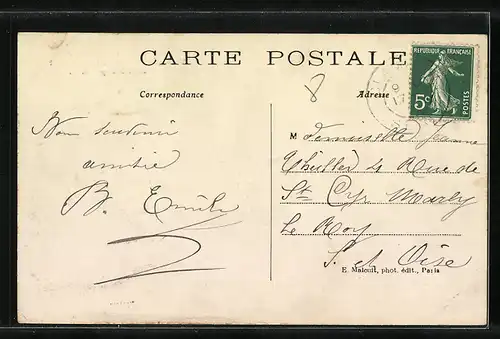 CARTE POSTALE
REPUBLIQUE FRANÇAISE
5c
POSTES
Correspondance
Adresse
8
Mon souvenir
amitié
B. Emile
Mademoiselle Jeanne
4 Rue de
St Cyr Marly
Le Roy
S. et Oise
E. Malcuit, phot. édit., Paris